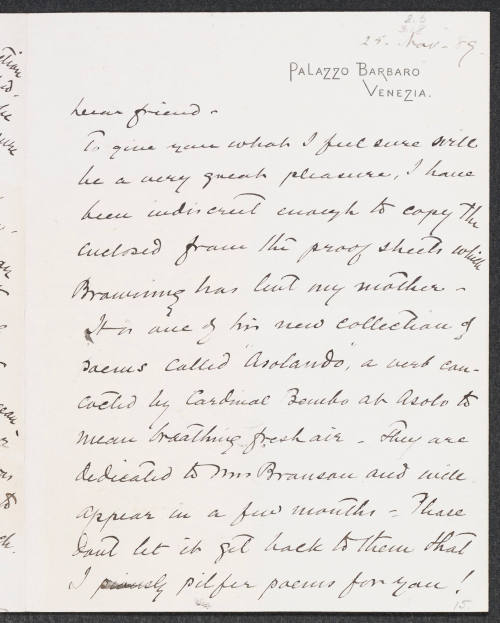 25. Nov. 89.
Palazzo Barbaro
Venezia.
Dear friend -
To give you what I feel sure will
be a very great pleasure, I have
been indiscreet enough to copy the
enclosed from the proof sheets which
Browning has lent my mother -
It is one of his new collection of
poems called 'Asolando', a verb con-
cocted by Cardinal Bembo at Asolo to
mean breathing fresh air - They are
dedicated to Mrs Bronson and will
appear in a few months - Please
Dont let it get back to them that
I piously pilfer poems for you!
15